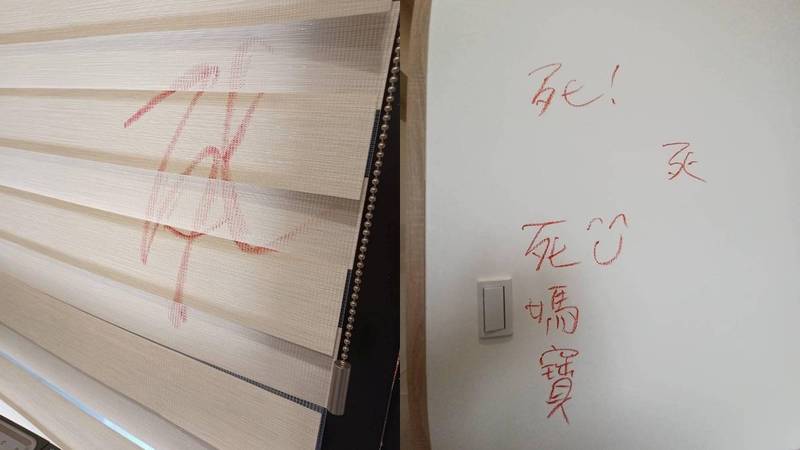 死!
死
死媽寶